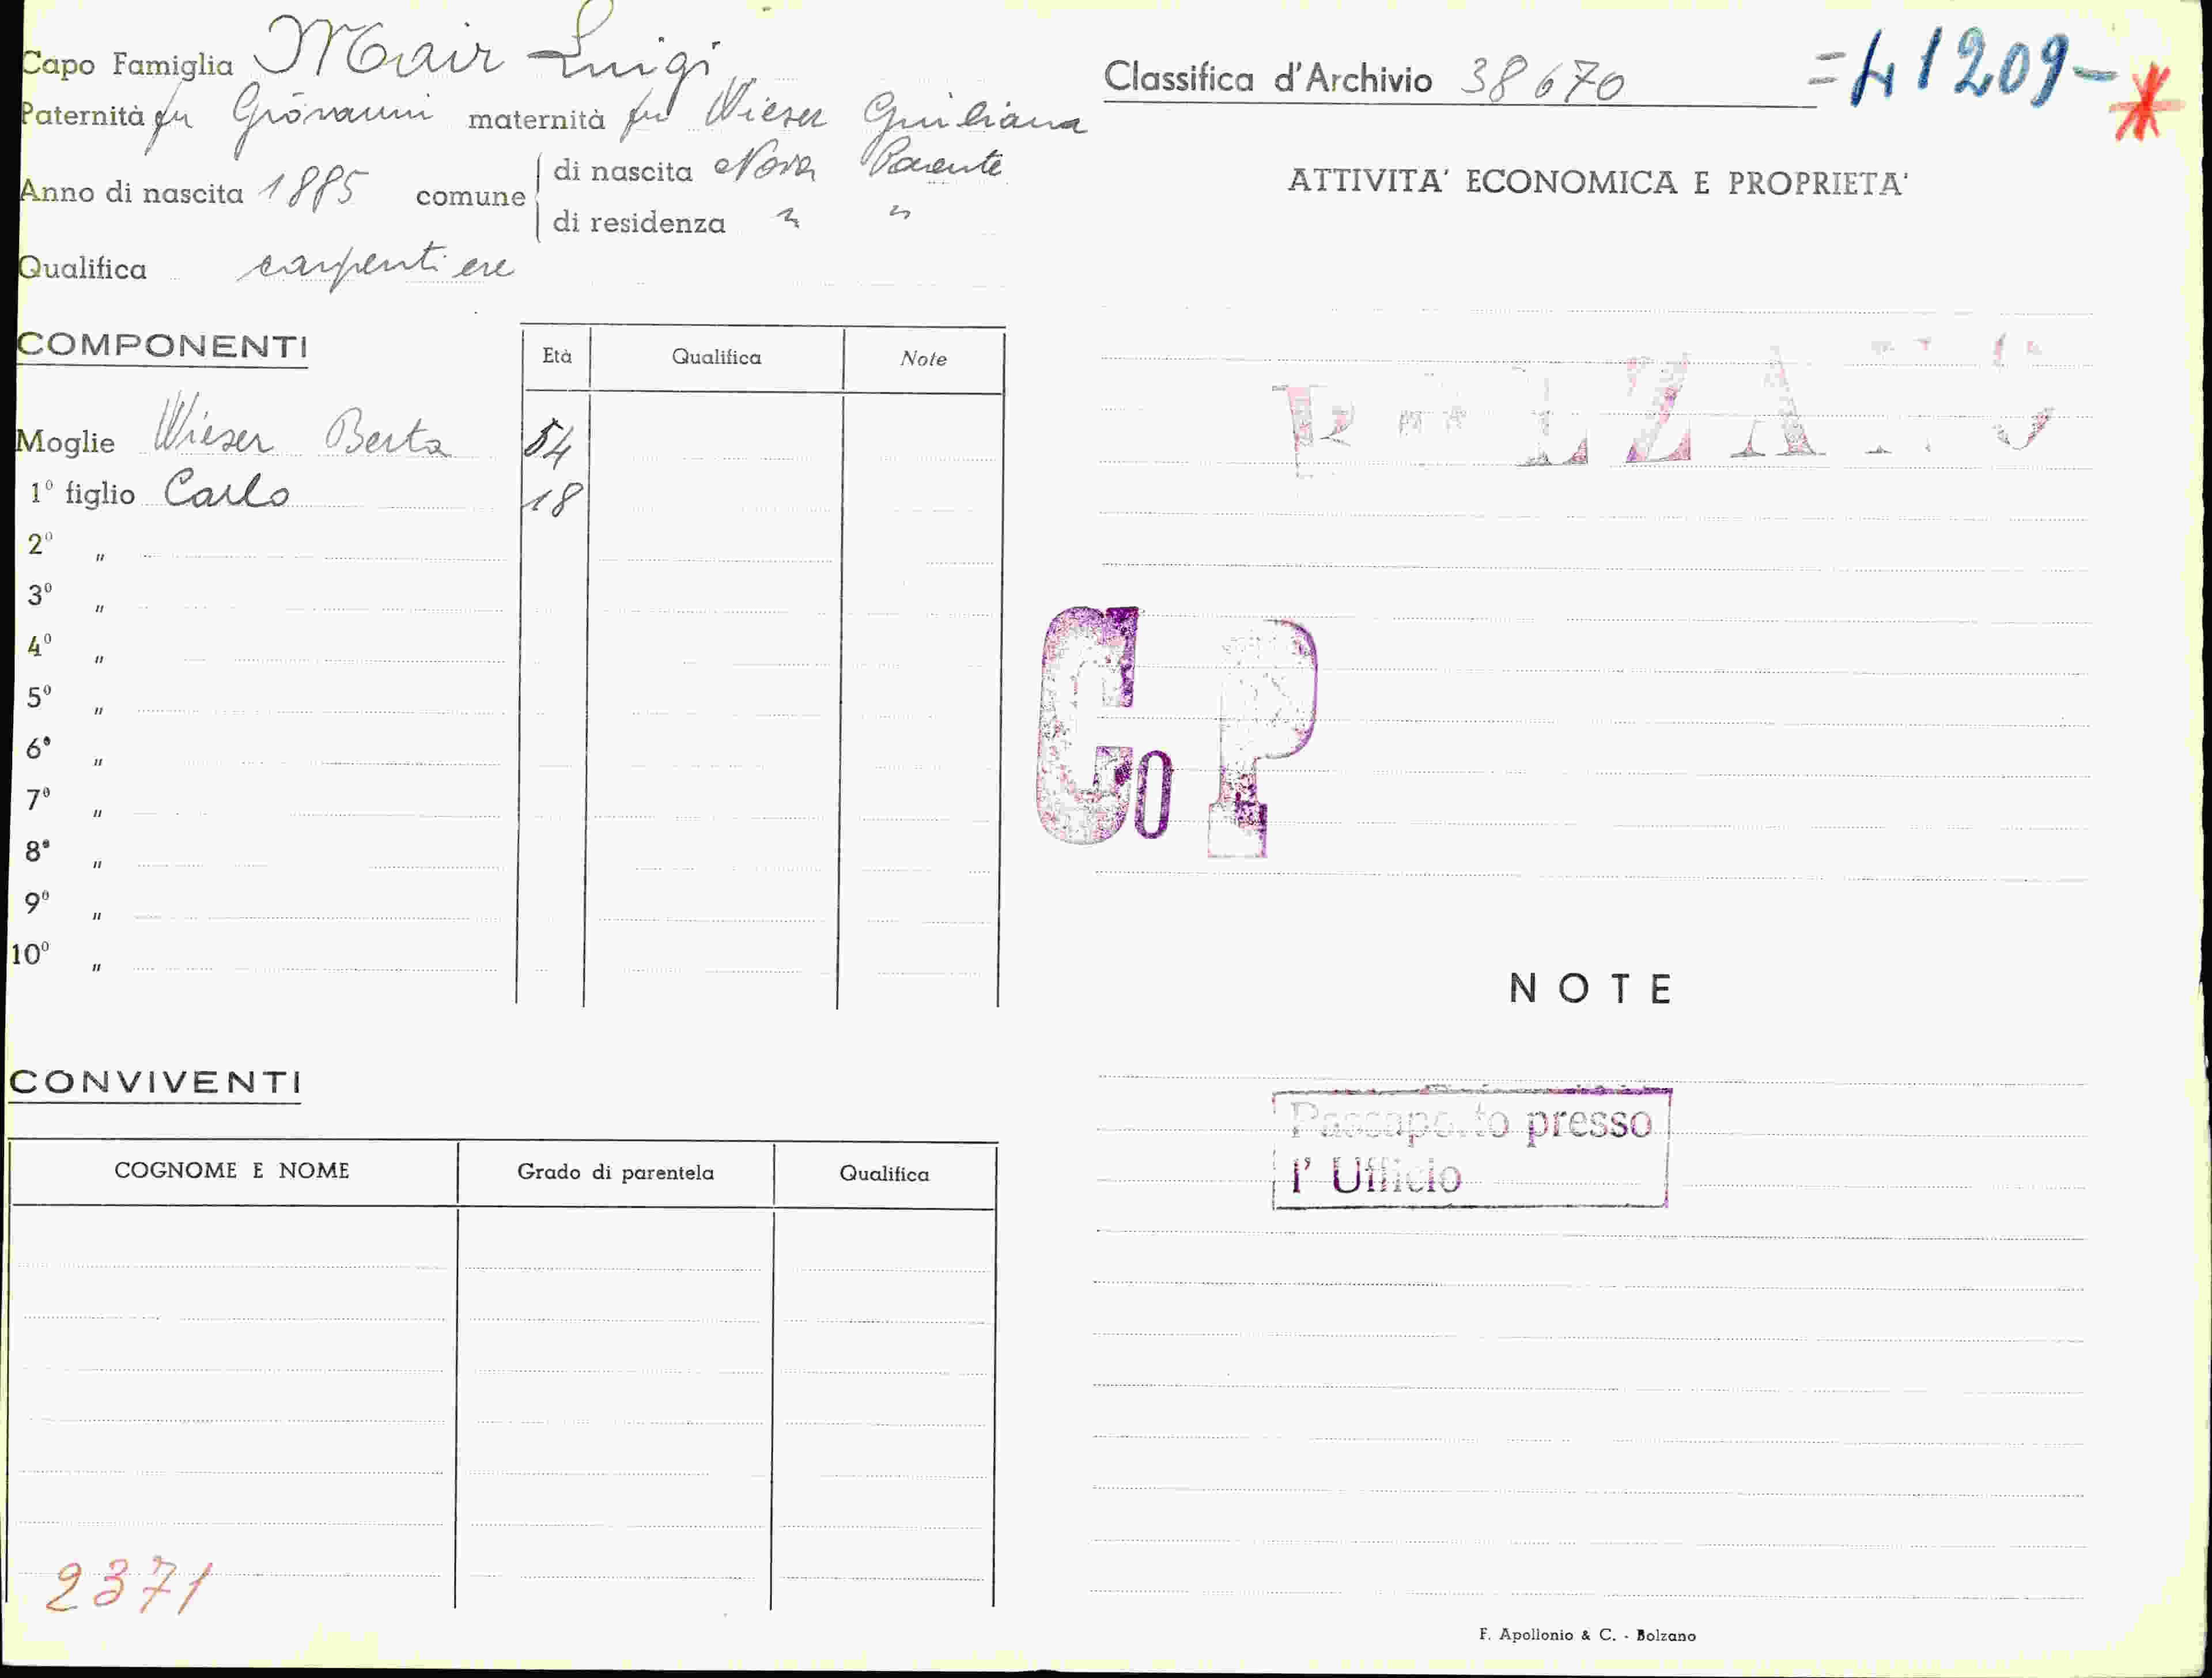 Capo Famiglia Mair Luigi
Paternità fu Giovanni maternità fu Wieser Giuliana
Anno di nascita 1885 comune di nascita Nova Ponente
di residenza " "
Qualifica carpentiere
COMPONENTI
Età Qualifica Note
Moglie Wieser Berta 54
1º figlio Carlo 18
2º "
3º "
4º "
5º "
6º "
7º "
8º "
9º "
10º "
CONVIVENTI
COGNOME E NOME Grado di parentela Qualifica
2371
Classifica d'Archivio 38670 =41209-
ATTIVITA' ECONOMICA E PROPRIETA'
BOLZANO
Co P
NOTE
Passaporto presso
l' Ufficio
F. Apollonio & C. - Bolzano